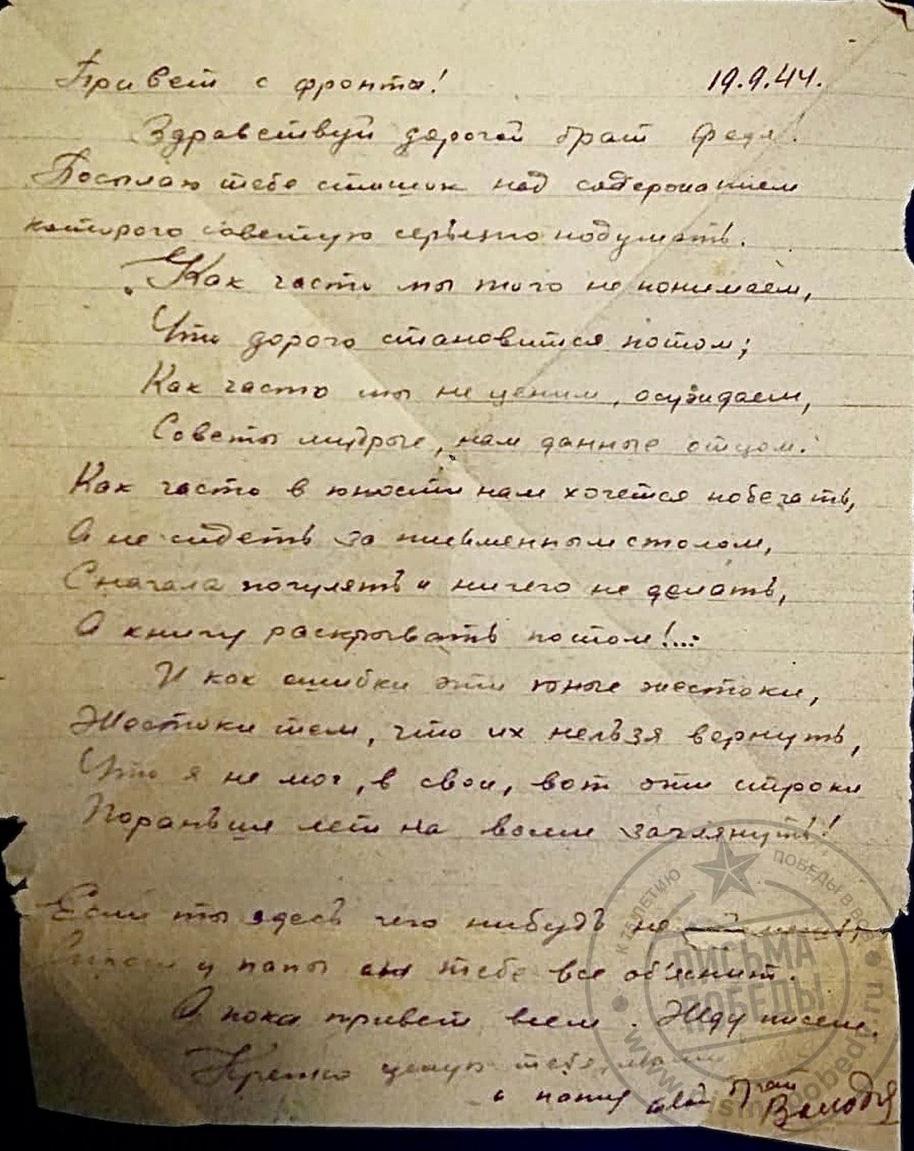 Привет с фронта! 19.9.44.
Здравствуй дорогой брат Федя!
Посылаю тебе стишик над содержанием
которого советую серьезно подумать.
„Как часто мы того не понимаем,
Что дорого становится потом;
Как часто мы не ценим, осуждаем,
Советы мудрые, нам данные отцом.
Как часто в юности нам хочется побегать,
А не сидеть за письменным столом,
Сначала погулять и ничего не делать,
А книгу раскрывать потом!...
И как ошибки эти юные жестоки,
Жестоки тем, что их нельзя вернуть,
Что я не мог, в свои, вот эти строки
Пораньше лет на восем заглянуть!
Если ты здесь чего нибудь не
Спроси у папы он тебе все об'яснит.
А пока привет всем. Жду писем.
Крепко целую тебя, маму
и папу твой брат Володя
К 75-ЛЕТИЮ ПОБЕДЫ В ВОВ
ПИСЬМА
ПОБЕДЫ
www.pismapobedy.ru